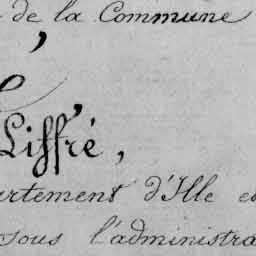 de la Commune
Liffré,
artement d'Ille et
sous l'administra